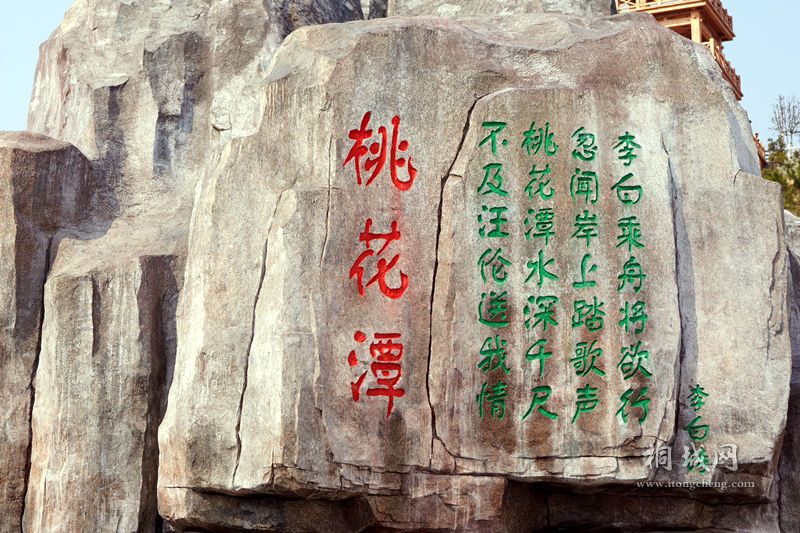 李白乘舟将欲行
忽闻岸上踏歌声
桃花潭水深千尺
不及汪伦送我情
李白诗
桃花潭
桐城网
www.itongcheng.com